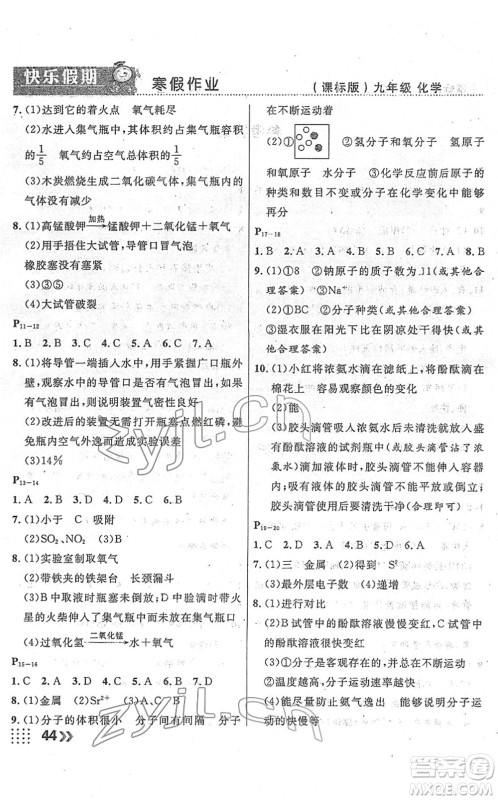 快乐假期
寒假作业
(课标版)九年级 化学
7. (1)达到它的着火点 氧气耗尽
(2)水进入集气瓶中,其体积约占集气瓶容积
的1/5 氧气约占空气总体积的1/5
(3)木炭燃烧生成二氧化碳气体,集气瓶内的
气体没有减少
8. (1)高锰酸钾 加热→ 锰酸钾+二氧化锰+氧气
(2)用手捂住大试管,导管口冒气泡
橡胶塞没有塞紧
(3)③⑤
(4)大试管破裂
P11-12
1. B 2. A 3. C 4. C 5. B 6. C 7. B
8. (1)将导管一端插入水中,用手紧握广口瓶外
壁,观察水中的导管口是否有气泡冒出,如果
有气泡冒出,则说明装置气密性良好
(2)改进后的装置无需打开瓶塞点燃红磷,避
免瓶内空气外逸而造成实验误差
(3)14%
P13-14
1. A 2. B 3. D 4. D 5. C 6. D
7. (1)小于 C 吸附
(2)SO₂、NO₂ (3)B
8. (1)实验室制取氧气
(2)带铁夹的铁架台 长颈漏斗
(3)B 取液时瓶塞未倒放在桌面上 D 带火
星的火柴伸入了集气瓶中(或没有放在集气瓶
口)
(4)过氧化氢 二氧化锰→ 水+氧气
P15-16
1. C 2. A 3. B 4. D 5. C 6. D 7. A
8. (1)金属 (2)Sr²⁺ (3)A B (4)B
9. (1)分子的体积很小 分子间有间隔 分子
在不断运动着
(2)① ②氢分子和氧分子 氢原子
和氧原子 水分子 ③化学反应前后原子的
种类和数目不变或分子分成原子、原子不可
再分
P17-18
1. B 2. A 3. A 4. C 5. B 6. A 7. B 8. D
9. (1)①8 ②钠原子的质子数为11(或其他合
理答案) ③Na⁺
(2)①BC ②分子(或其他合理答案)
③湿衣服在阳光下比在阴凉处干得快(或其
他合理答案)
10. (1)小红将浓氨水滴在滤纸上,将酚酞滴在
棉花上 容易观察颜色的变化
(2)能
(3)胶头滴管吸入浓氨水后,没有及时放入
盛有酚酞溶液的试剂瓶中(或其他合理答
案) 滴加液体时,胶头滴管不能伸入试管
中,更不能接触试管壁;胶头滴管不能一管
多用;胶头滴管使用后应立即清洗干净
P19-20
1. D 2. D 3. C 4. A 5. B 6. B
7. (1)三 金属 (2)得到 (3)S²⁻
(4)最外层电子数 (5)递增
8. (1)进行对比
(2)B试管中的酚酞溶液不变红,C试管中
的酚酞溶液很快变红
(3)①分子是在不断运动的 ②温度越高分
子运动速率越快
(4)E试管中的溶液先变红,F试管中的溶
液后变红 液态分子运动的快,固态分子运
动的慢
44
zyjl.cn
zyjl.cn
答案圈
MXQE.COM